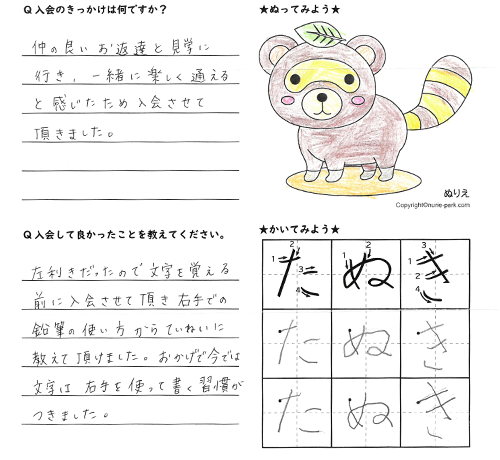 Q入会のきっかけは何ですか？
仲の良いお返達と見学に
行き、一緒に楽しく通える
と感じたため入会させて
頂きました。
★ぬってみよう★
ぬりえ
CopyrightOnurie-perk.com
Q入会して良かったことを教えてください。
左利きだったので文字を覚える
前に入会させて頂き右手での
鉛筆の使い方からていねいに
教えて頂けました。おかげで今では
文字は右手を使って書く習慣が
つきました。
★かいてみよう★
たぬき
たぬき
たぬき